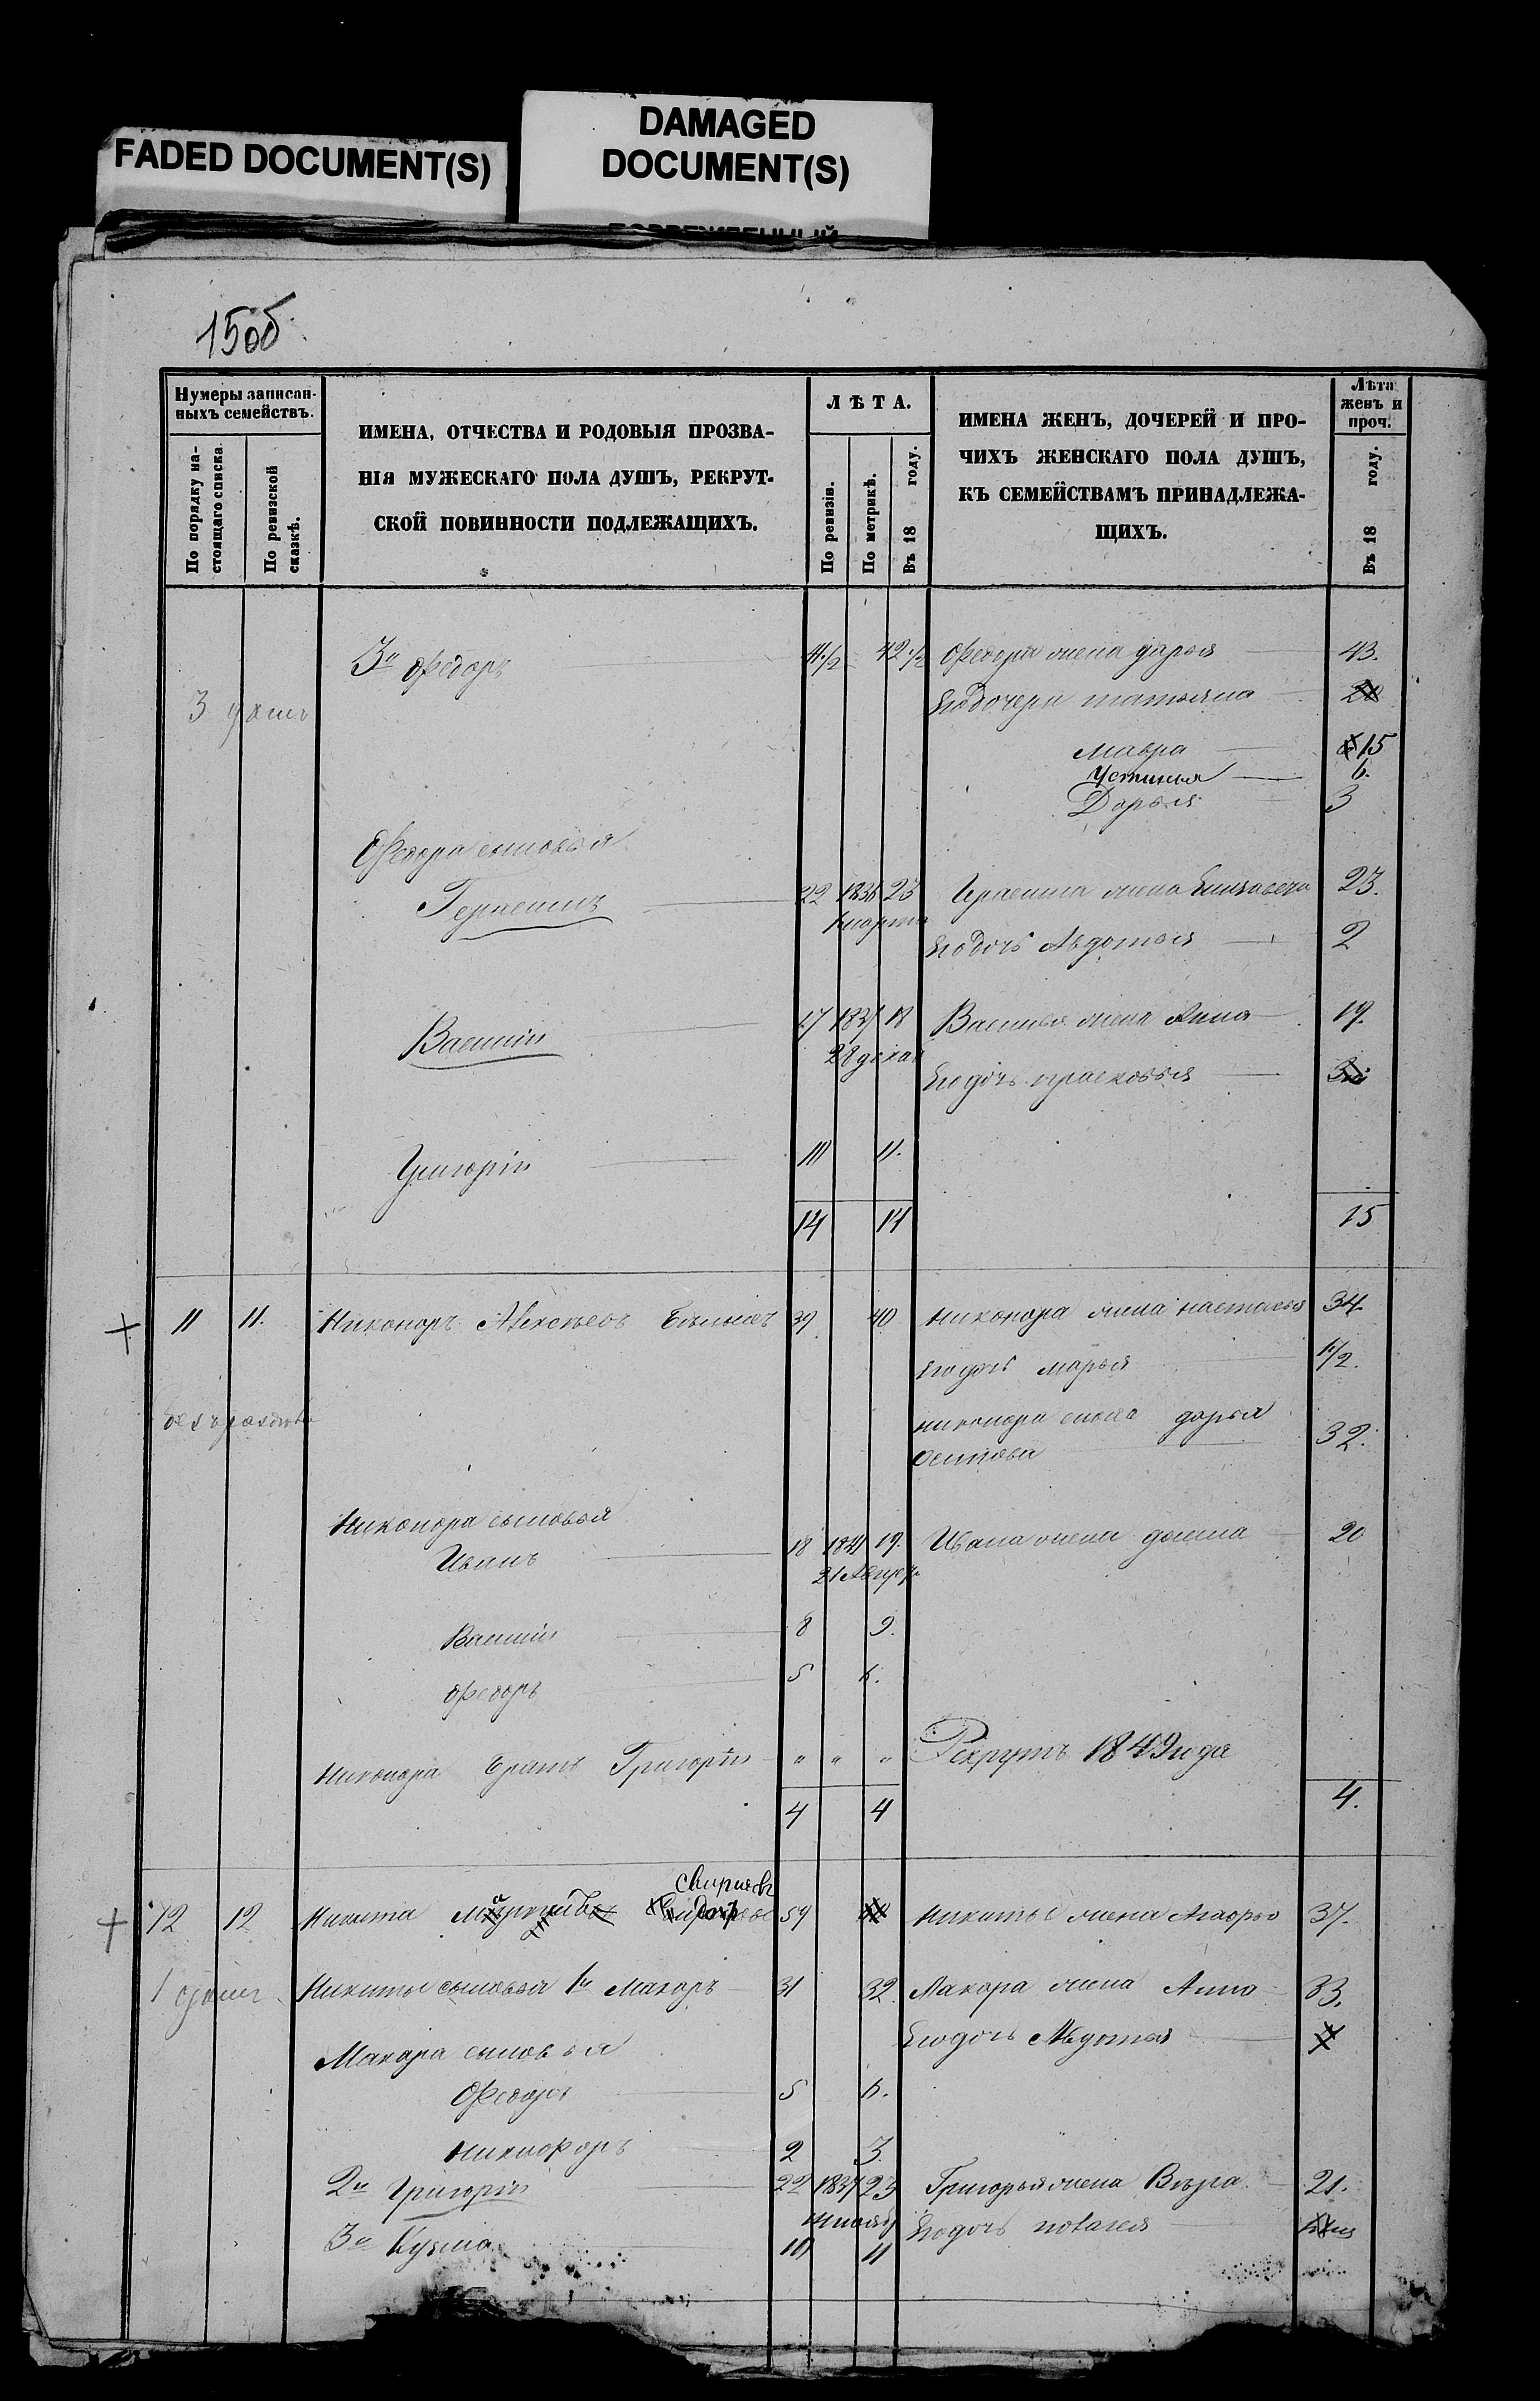 FADED DOCUMENT(S)
DAMAGED
DOCUMENT(S)
15об.
Нумеры записан-
ныхъ семействъ.
По порядку на-
стоящаго списка.
По ревизской
сказкѣ.
ИМЕНА, ОТЧЕСТВА И РОДОВЫЯ ПРОЗВА-
НІЯ МУЖЕСКАГО ПОЛА ДУШЪ, РЕКРУТ-
СКОЙ ПОВИННОСТИ ПОДЛЕЖАЩИХЪ.
ЛѢТА.
По ревизіи.
По метрикѣ.
Въ 18 году.
ИМЕНА ЖЕНЪ, ДОЧЕРЕЙ И ПРО-
ЧИХЪ ЖЕНСКАГО ПОЛА ДУШЪ,
КЪ СЕМЕЙСТВАМЪ ПРИНАДЛЕЖА-
ЩИХЪ.
Лѣта
женъ и
проч.
Въ 18 году.
3й Федоръ 41/2 42 1/2 Федора жена дарья 43.
Его дочери татьяна
Мавра 15
Устинья 6.
Дарья 3
Федора сыновья
Герасимъ 22 1836 23 Герасима жена Елизавета 23.
4 марта
Его дочь Авдотья 2
Василій 17 1837 18 Василья жена Анна 19.
28 декаб
Его дочь прасковья
Григорій 10 11.
14 14 15
11 11. Никоноръ Алексѣевъ 39 40 Никонора жена настасья 34.
Его дочь марья 1 1/2.
Никонора дарья
Осипова 32.
Никонора сыновья
Иванъ 18 1841 19. Ивана жена домна 20
Василій 8 9.
Федоръ 5 6.
Никонора братъ Григорій " " " Рекрутъ 1849 года
4 4 4.
12 12 Никита 59 Никиты жена 37.
Никиты сыновья 1й Макаръ 31 32 Макара жена Анна 33.
Его дочь Авдотья
Макара сыновья
Федоръ 5 6.
Никифоръ 2 3.
2й Григорій 22 1837 23 Григорья жена Вѣра 21.
Его дочь
3й Кузма 10 11